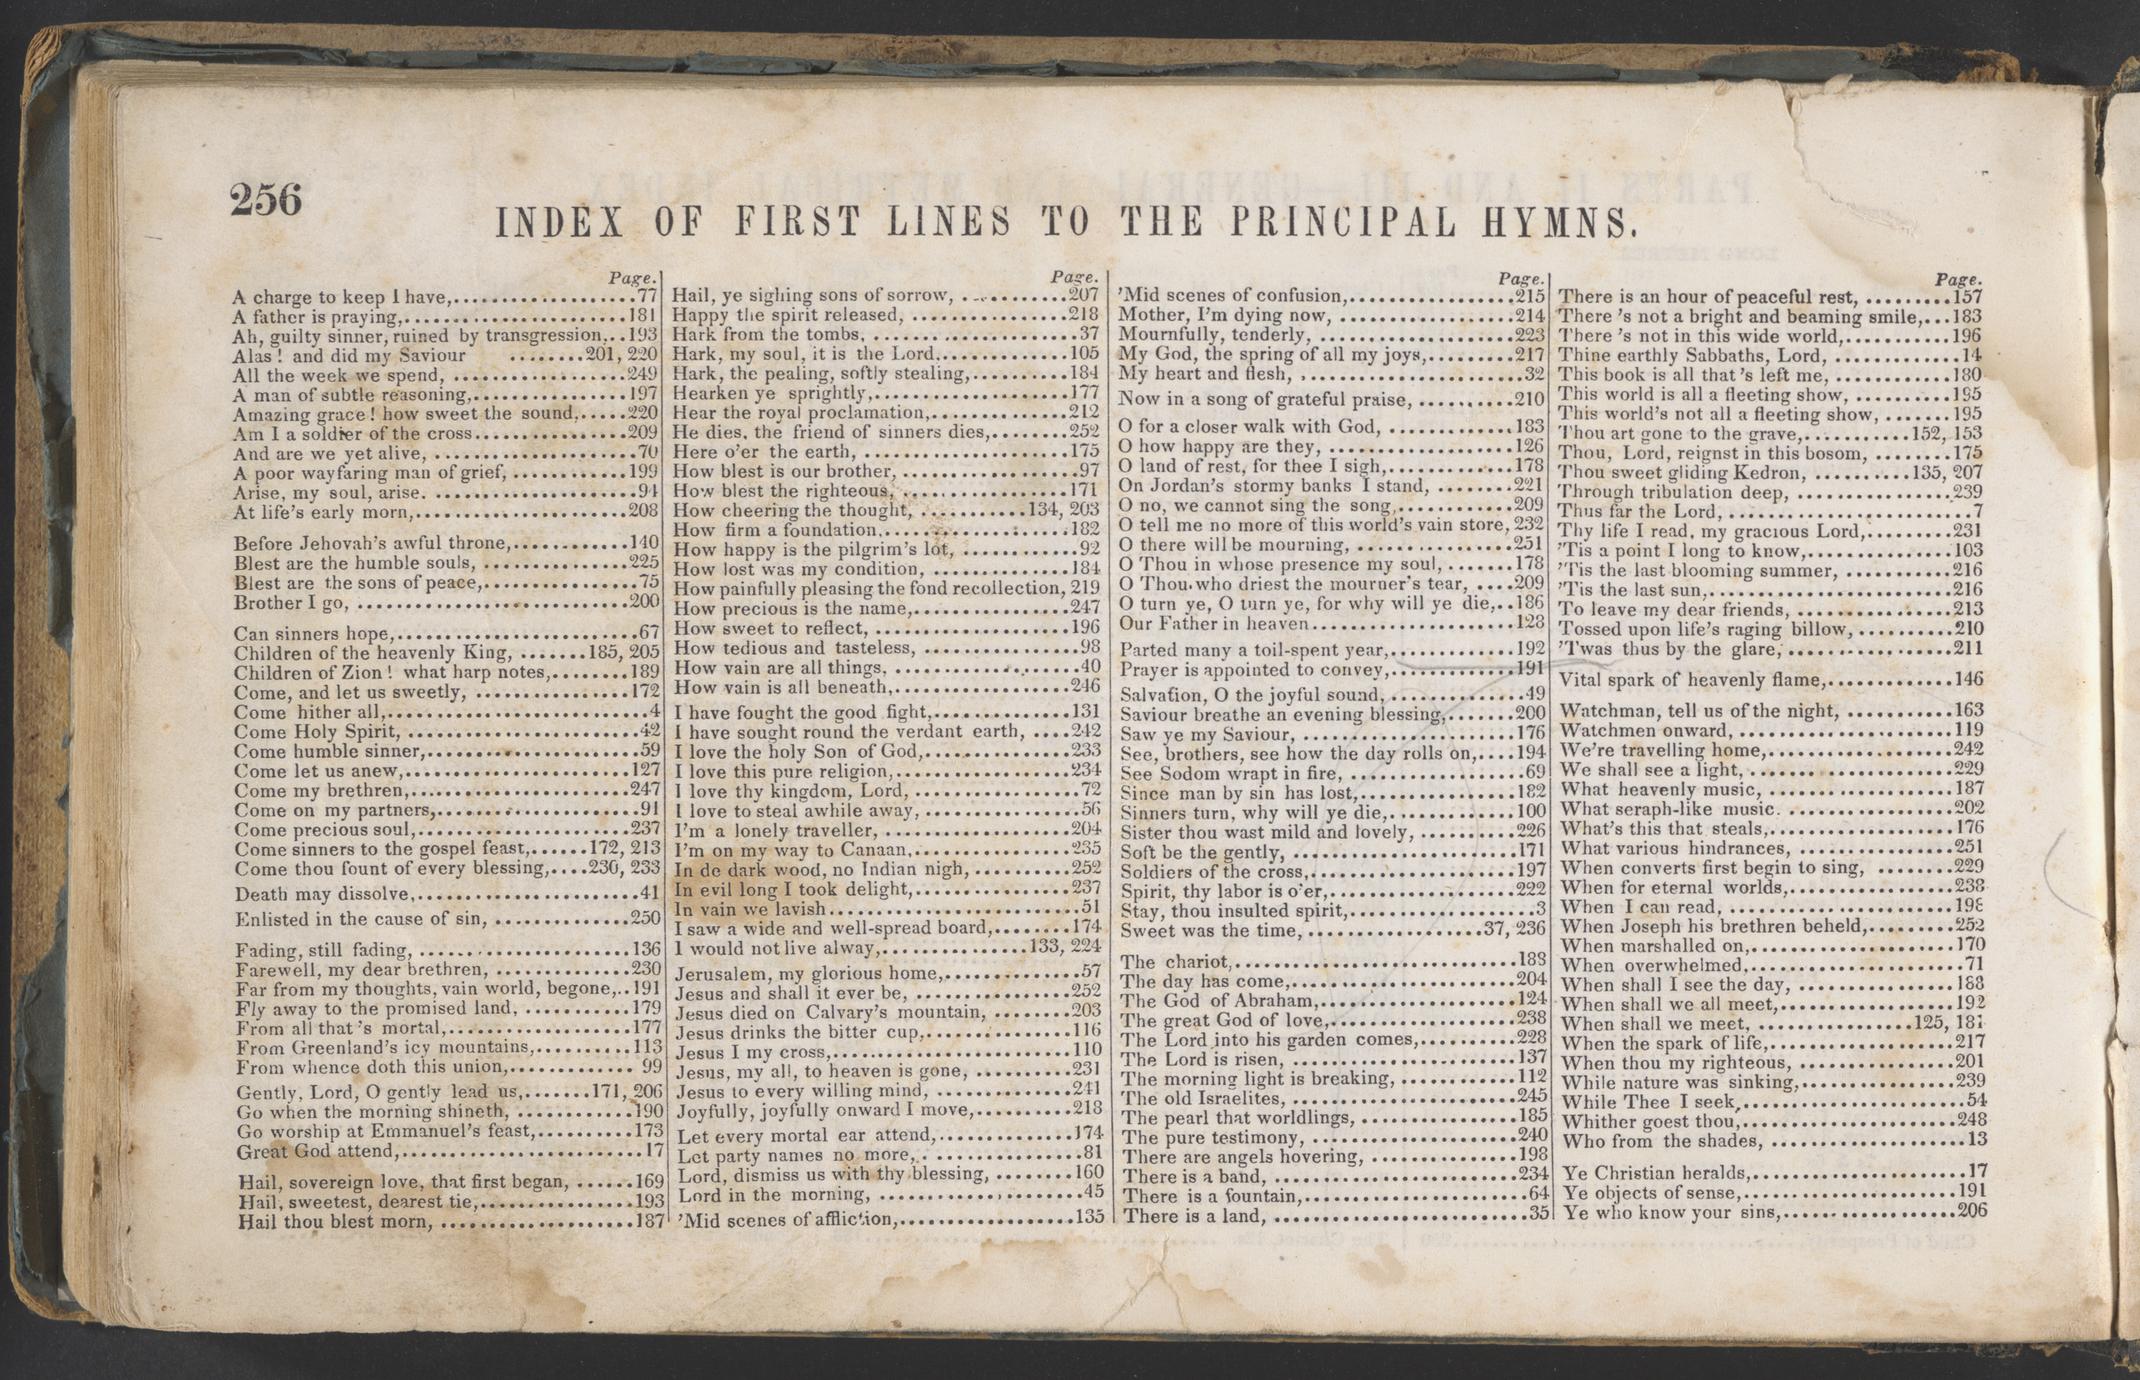 256
INDEX OF FIRST LINES TO THE PRINCIPAL HYMNS.
Page.
A charge to keep I have,..................77
A father is praying,......................181
Ah, guilty sinner, ruined by transgression,..193
Alas! and did my Saviour ........201, 220
All the week we spend, .................249
A man of subtle reasoning,...............197
Amazing grace! how sweet the sound,.....220
Am I a soldier of the cross...............209
And are we yet alive, ....................70
A poor wayfaring man of grief, ............199
Arise, my soul, arise. ....................94
At life's early morn,.....................208
Before Jehovah's awful throne,............140
Blest are the humble souls, ..............225
Blest are the sons of peace,...............75
Brother I go, ...........................200
Can sinners hope,........................67
Children of the heavenly King, .......185, 205
Children of Zion! what harp notes,........189
Come, and let us sweetly, ...............172
Come hither all,..........................4
Come Holy Spirit, .......................42
Come humble sinner,.....................59
Come let us anew,......................127
Come my brethren,......................247
Come on my partners,....................91
Come precious soul,.....................237
Come sinners to the gospel feast,......172, 213
Come thou fount of every blessing,....230, 233
Death may dissolve,......................41
Enlisted in the cause of sin, .............250
Fading, still fading, .....................136
Farewell, my dear brethren, .............230
Far from my thoughts, vain world, begone,..191
Fly away to the promised land, ..........179
From all that's mortal,..................177
From Greenland's icy mountains,..........113
From whence doth this union,............ 99
Gently, Lord, O gently lead us,.......171, 206
Go when the morning shineth, ...........190
Go worship at Emmanuel's feast,..........173
Great God attend,........................17
Hail, sovereign love, that first began, ......169
Hail, sweetest, dearest tie,...............193
Hail thou blest morn, ...................187
Page.
Hail, ye sighing sons of sorrow, ...........207
Happy the spirit released, ...............218
Hark from the tombs, ....................37
Hark, my soul, it is the Lord,.............105
Hark, the pealing, softly stealing,..........184
Hearken ye sprightly,...................177
Hear the royal proclamation,..............212
He dies, the friend of sinners dies,........252
Here o'er the earth, ....................175
How blest is our brother, .................97
How blest the righteous, ................171
How cheering the thought, ...........134, 203
How firm a foundation,..................182
How happy is the pilgrim's lot, ............92
How lost was my condition, ..............184
How painfully pleasing the fond recollection, 219
How precious is the name,...............247
How sweet to reflect, ...................196
How tedious and tasteless, ...............98
How vain are all things, ..................40
How vain is all beneath,.................246
I have fought the good fight,.............131
I have sought round the verdant earth, ....242
I love the holy Son of God,..............233
I love this pure religion,.................234
I love thy kingdom, Lord, ................72
I love to steal awhile away, ...............56
I'm a lonely traveller, ...................204
I'm on my way to Canaan,...............235
In de dark wood, no Indian nigh, .........252
In evil long I took delight,...............237
In vain we lavish........................51
I saw a wide and well-spread board,.......174
I would not live alway,..............133, 224
Jerusalem, my glorious home,.............57
Jesus and shall it ever be, ...............252
Jesus died on Calvary's mountain, ........203
Jesus drinks the bitter cup,..............116
Jesus I my cross,.......................110
Jesus, my all, to heaven is gone, .........231
Jesus to every willing mind, .............241
Joyfully, joyfully onward I move,.........218
Let every mortal ear attend,.............174
Let party names no more,.................81
Lord, dismiss us with thy blessing, ........160
Lord in the morning, ....................45
'Mid scenes of affliction,.................135
Page.
'Mid scenes of confusion,................215
Mother, I'm dying now, .................214
Mournfully, tenderly, ...................223
My God, the spring of all my joys,........217
My heart and flesh, ......................32
Now in a song of grateful praise, .........210
O for a closer walk with God, ............183
O how happy are they, ..................126
O land of rest, for thee I sigh,............178
On Jordan's stormy banks I stand, ........221
O no, we cannot sing the song,...........209
O tell me no more of this world's vain store, 232
O there will be mourning, ...............251
O Thou in whose presence my soul, .......178
O Thou who driest the mourner's tear, ....209
O turn ye, O turn ye, for why will ye die,..186
Our Father in heaven....................128
Parted many a toil-spent year,............192
Prayer is appointed to convey,............191
Salvation, O the joyful sound, .............49
Saviour breathe an evening blessing,.......200
Saw ye my Saviour, ....................176
See, brothers, see how the day rolls on,....194
See Sodom wrapt in fire, .................69
Since man by sin has lost,...............182
Sinners turn, why will ye die,............100
Sister thou wast mild and lovely, .........226
Soft be the gently, .....................171
Soldiers of the cross,...................197
Spirit, thy labor is o'er,.................222
Stay, thou insulted spirit,..................3
Sweet was the time, .................37, 236
The chariot,...........................188
The day has come,.....................204
The God of Abraham,..................124
The great God of love,..................238
The Lord into his garden comes,.........228
The Lord is risen, .....................137
The morning light is breaking, ...........112
The old Israelites, .....................245
The pearl that worldlings, ...............185
The pure testimony, ...................240
There are angels hovering, ..............198
There is a band, ......................234
There is a fountain,.....................64
There is a land, ........................35
Page.
There is an hour of peaceful rest, .........157
There's not a bright and beaming smile,...183
There's not in this wide world,...........196
Thine earthly Sabbaths, Lord, ............14
This book is all that's left me, ............180
This world is all a fleeting show, .........195
This world's not all a fleeting show, .......195
Thou art gone to the grave,..........152, 153
Thou, Lord, reignst in this bosom, ........175
Thou sweet gliding Kedron, ..........135, 207
Through tribulation deep, ...............239
Thus far the Lord, ........................7
Thy life I read, my gracious Lord,.........231
'Tis a point I long to know,..............103
'Tis the last blooming summer, ..........216
'Tis the last sun,.......................216
To leave my dear friends, ...............213
Tossed upon life's raging billow, ..........210
'Twas thus by the glare, ................211
Vital spark of heavenly flame,............146
Watchman, tell us of the night, ...........163
Watchmen onward, ....................119
We're travelling home,..................242
We shall see a light, ...................229
What heavenly music, .................187
What seraph-like music. ................202
What's this that steals,..................176
What various hindrances, ...............251
When converts first begin to sing, ........229
When for eternal worlds,................238
When I can read, .....................198
When Joseph his brethren beheld,.........252
When marshalled on,...................170
When overwhelmed,....................71
When shall I see the day, ...............188
When shall we all meet,.................192
When shall we meet, ...............125, 181
When the spark of life,..................217
When thou my righteous, ...............201
While nature was sinking,...............239
While Thee I seek,......................54
Whither goest thou,....................248
Who from the shades, ...................13
Ye Christian heralds,.....................17
Ye objects of sense,....................191
Ye who know your sins,.................206